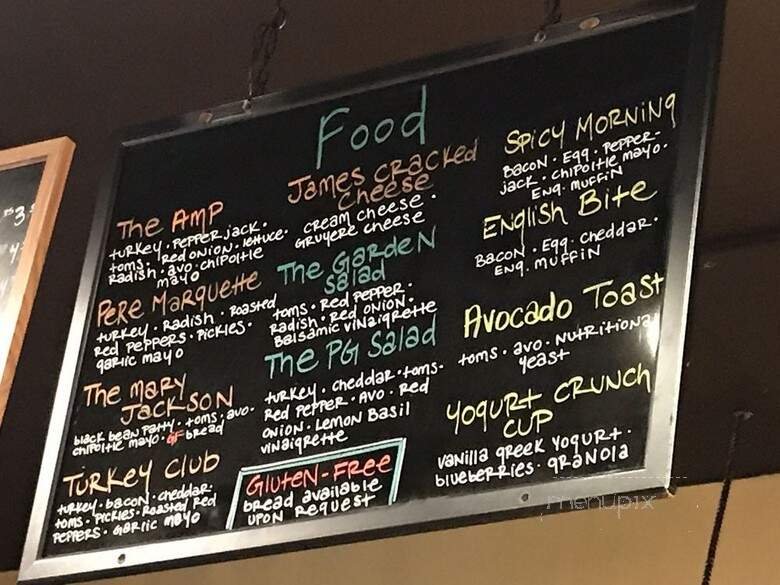 Food
The AMP
turkey. Pepper jack.
toms. Red onion. lettuce.
Radish. avo. chipoltle
mayo
Pere Marquette
turkey. Radish. Roasted
Red peppers. Pickles.
garlic mayo
The Mary
Jackson
black bean Patty. toms. avo.
chipoltle mayo. GF bread
Turkey Club
turkey. bacon. cheddar.
toms. Pickles. Roasted Red
Peppers. Garlic mayo
James Cracked
Cheese
cream cheese.
Gruyere cheese
The Garden
Salad
toms. Red Pepper.
Radish. Red Onion.
Balsamic vinaigrette
The PG Salad
turkey. cheddar. toms.
Red Pepper. Avo. Red
Onion. Lemon Basil
vinaigrette
Gluten-Free
bread available
upon Request
Spicy Morning
Bacon. Egg. Pepper-
jack. Chipoltle mayo.
Eng. Muffin
English Bite
Bacon. Egg. Cheddar.
Eng. Muffin
Avocado Toast
toms. avo. Nutritional
yeast
Yogurt Crunch
Cup
vanilla greek yogurt.
blueberries. granola
menupix